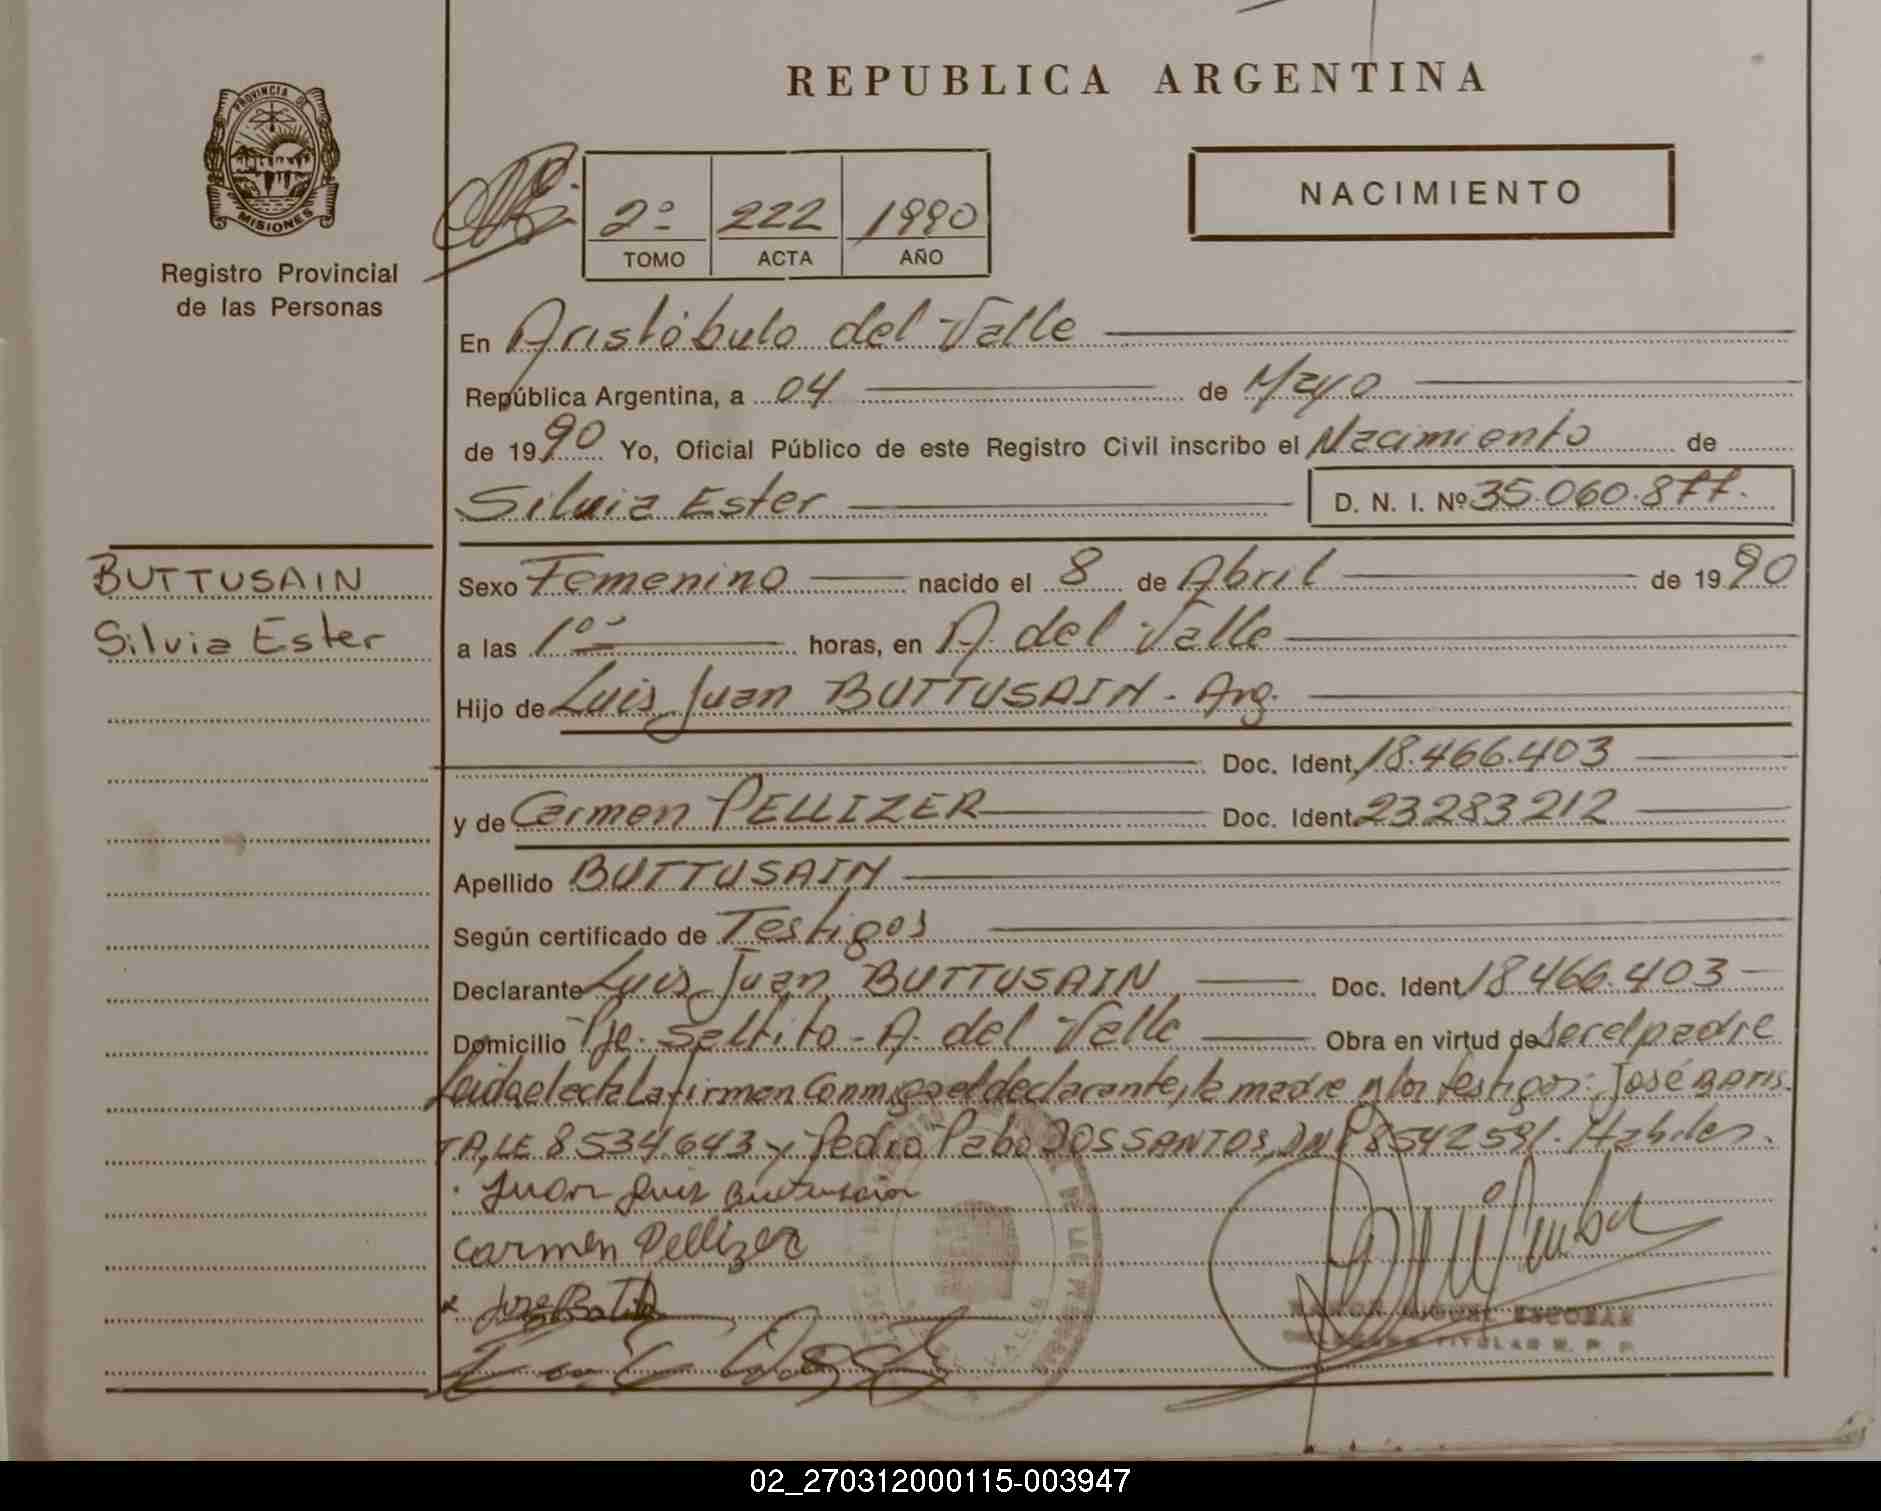 REPUBLICA ARGENTINA
PROVINCIA DE
MISIONES
Registro Provincial
de las Personas
2º 222 1990
TOMO ACTA AÑO
NACIMIENTO
En Aristóbulo del Valle
República Argentina, a 04 de Mayo
de 1990 Yo, Oficial Público de este Registro Civil inscribo el Nacimiento de
Silvia Ester D. N. I. Nº 35.060.877.
BUTTUSAIN
Silvia Ester
Sexo Femenino nacido el 8 de Abril de 1990
a las 1º horas, en A. del Valle
Hijo de Luis Juan BUTTUSAIN - Arg.
Doc. Ident. 18.466.403
y de Carmen PELLIZER Doc. Ident. 23283212
Apellido BUTTUSAIN
Según certificado de Testigos
Declarante Luis Juan BUTTUSAIN Doc. Ident. 18466.403
Domicilio Pje. Saltito - A. del Valle Obra en virtud de ser el padre
Leida el acta La firman Conmigo el declarante, la madre y los testigos: José BATIS
TA, LE 8534643 y Pedro Pabo DOS SANTOS, DNI 8542591. Habiles.
Juan Luis Buttusain
Carmen Pellizer
Jose Batista
RAMON MIGUEL ESCOBAR
TITULAR R. P. P.
02_270312000115-003947